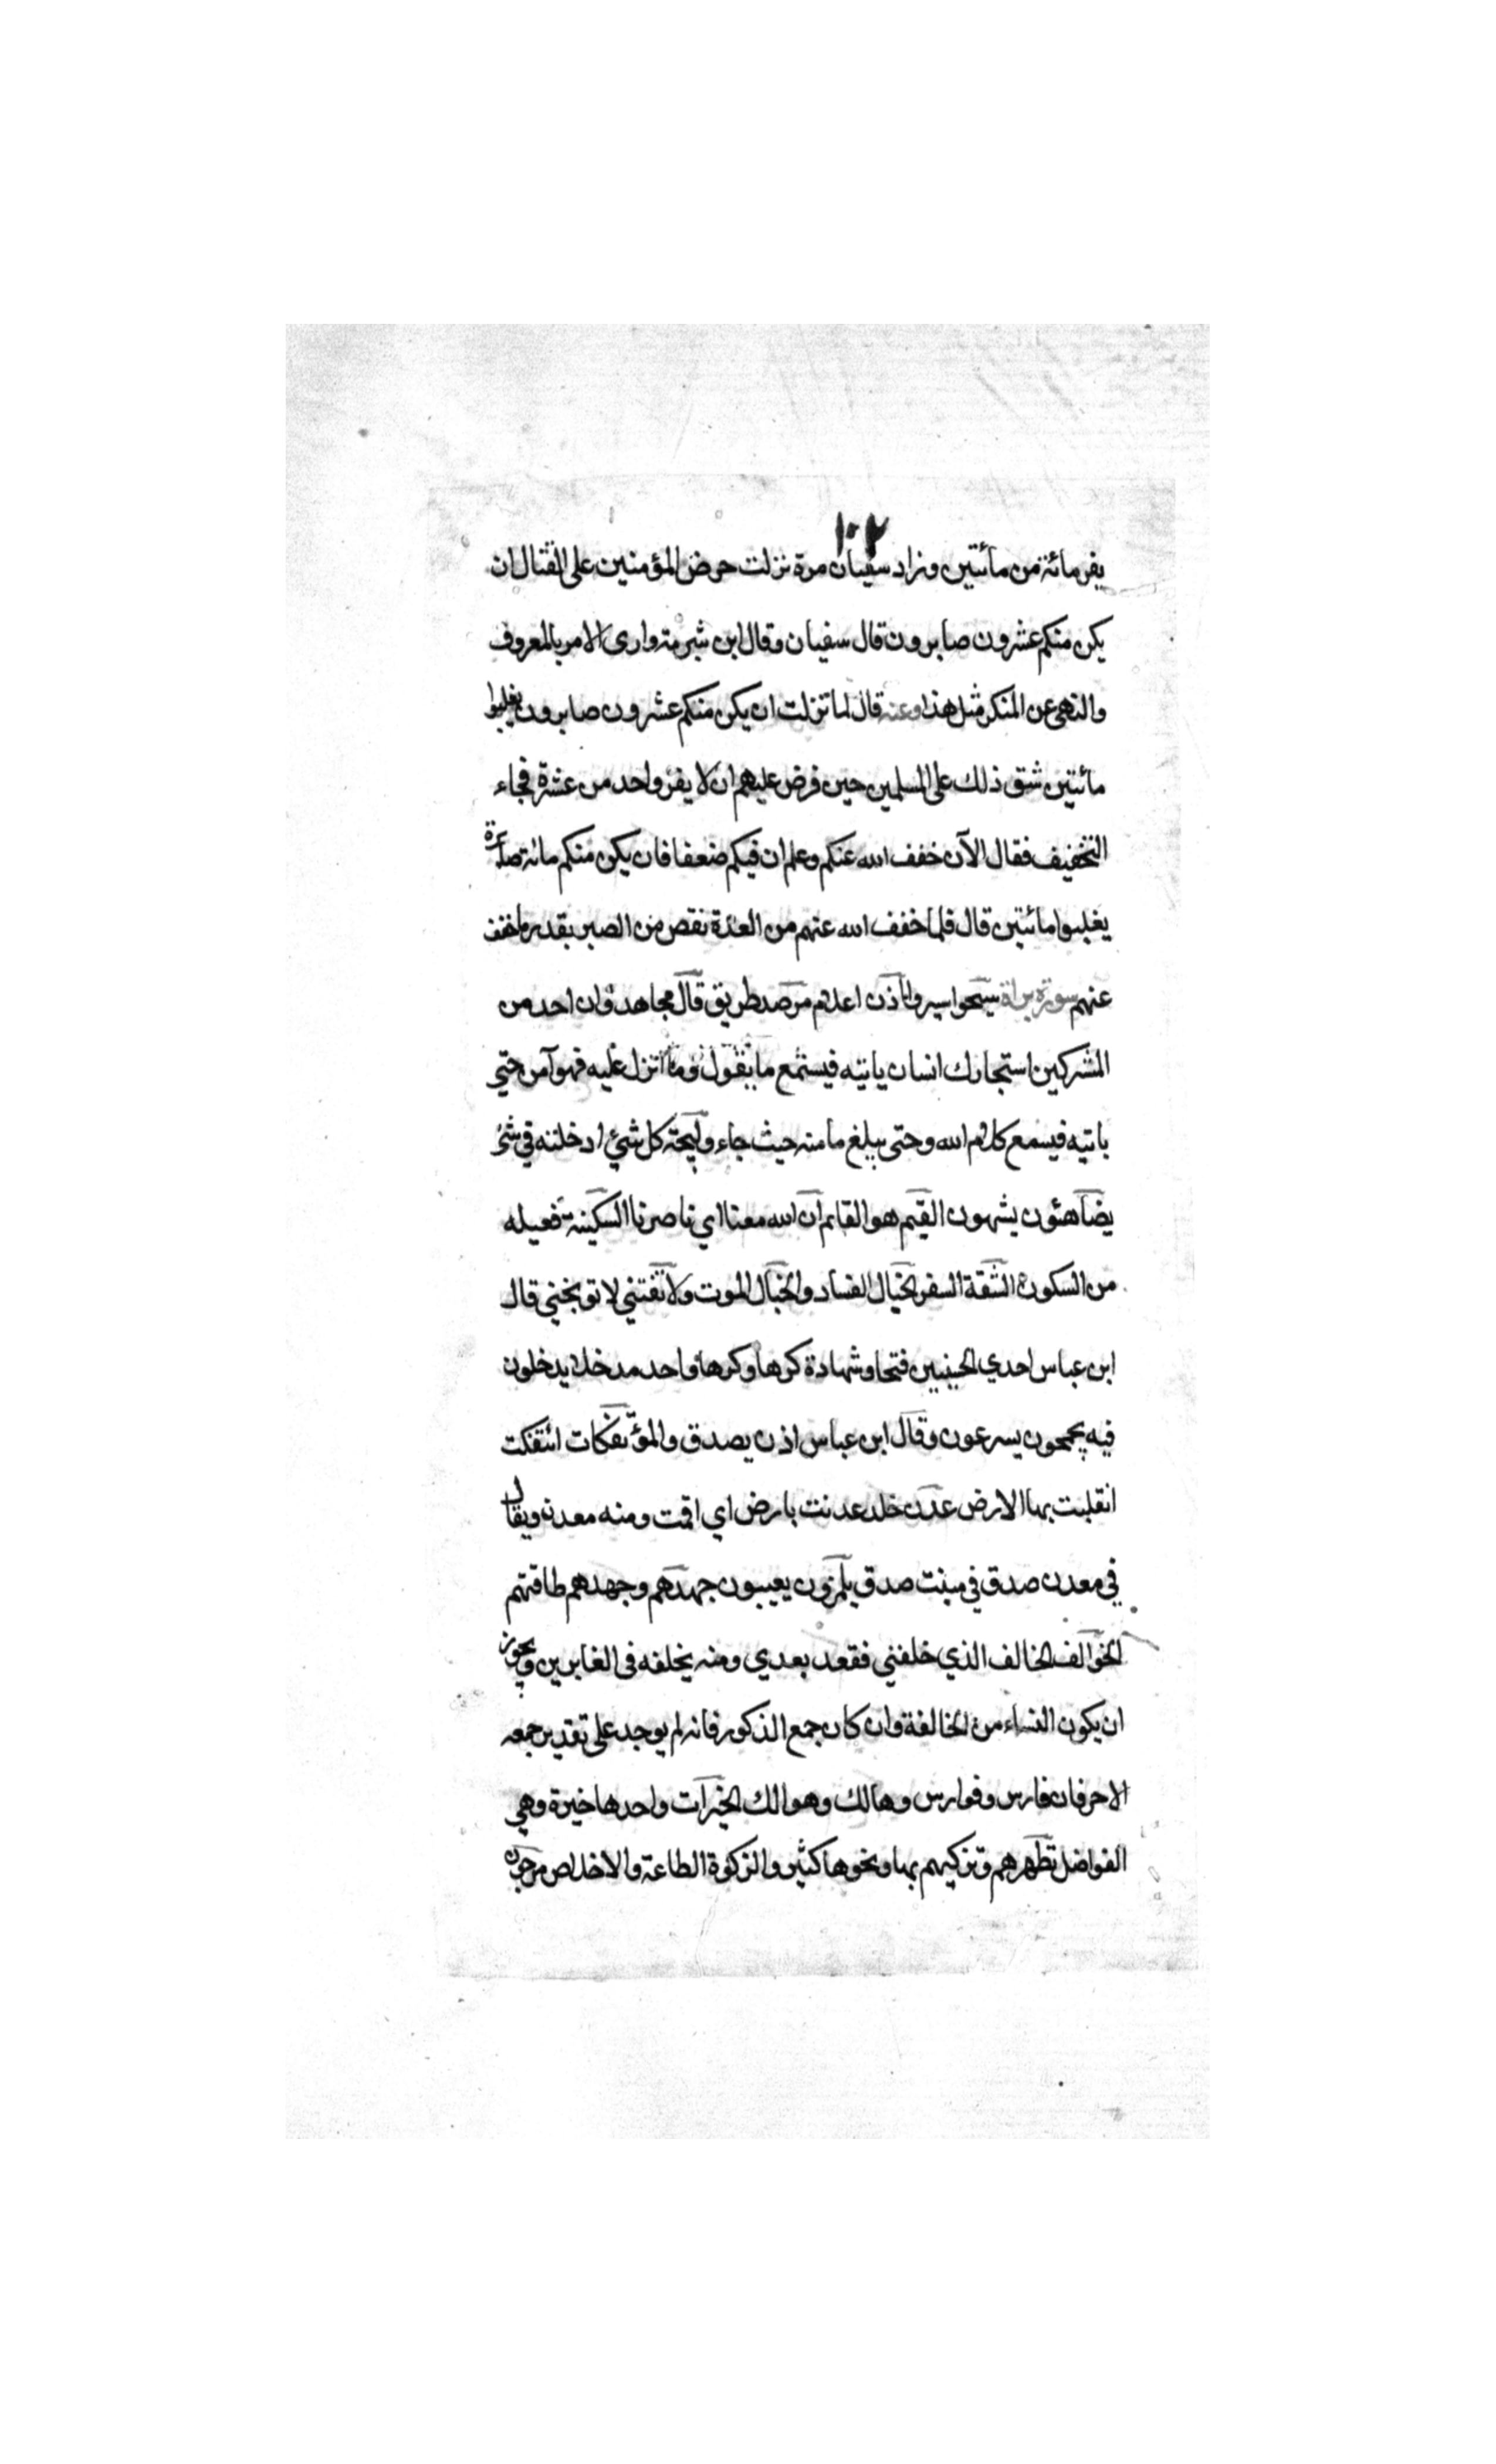 ١٠٢
يفر مائة من مائتين وزاد سفيان مرة نزلت حرض المؤمنين على القتال ان
يكن منكم عشرون صابرون قال سفيان وقال ابن شبرمة وارى الامر بالمعروف
والنهى عن المنكر مثل هذا وعنه قال لما نزلت ان يكن منكم عشرون صابرون يغلبوا
مائتين شق ذلك على المسلمين حين فرض عليهم ان لا يفر واحد من عشرة فجاء
التخفيف فقال الآن خفف الله عنكم وعلم ان فيكم ضعفا فان يكن منكم مائة صابرة
يغلبوا مائتين قال فلما خفف الله عنهم من العدة نقص من الصبر بقدر ما خفف
عنهم سورة براة سيحوا سيروا اذن اعلام مرصد طريق قال مجاهد وان احد من
المشركين استجارك انسان ياتيه فيستمع ما يقول وما انزل عليه فهو آمن حتي
ياتيه فيسمع كلام الله وحتى يبلغ مامنه حيث جاء وليجة كل شيء ادخلته في شئ
يضاهئون يشبهون القيم هو القائم ان الله معنا اي ناصرنا السكينة فعيله
من السكون الشقة السفر الخبال الفساد والخبال الموت ولا تفتني لا توبخني قال
ابن عباس احدي الحسنيين فتحا وشهادة كرها وكرها واحد مدخلا يدخلون
فيه يجمحون يسرعون وقال ابن عباس اذن يصدق والمؤتفكات ائتفكت
انقلبت بها الارض عدن خلد عدنت بارض اي اقمت ومنه معدن ويقال
في معدن صدق في منبت صدق يلمزون يعيبون جهدهم وجهدهم طاقتهم
الخوالف الخالف الذي خلفني فقعد بعدي ومنه يخلفه فى الغابرين ويجوز
ان يكون النساء من الخالفة وان كان جمع الذكور فانه لم يوجد على تقدير جمعه
الا حرفان فارس وفوارس وهالك وهوالك الخيرات واحدها خيرة وهي
الفواضل تطهرهم وتزكيهم بها ونحوها كثير والزكوة الطاعة والاخلاص مرجون